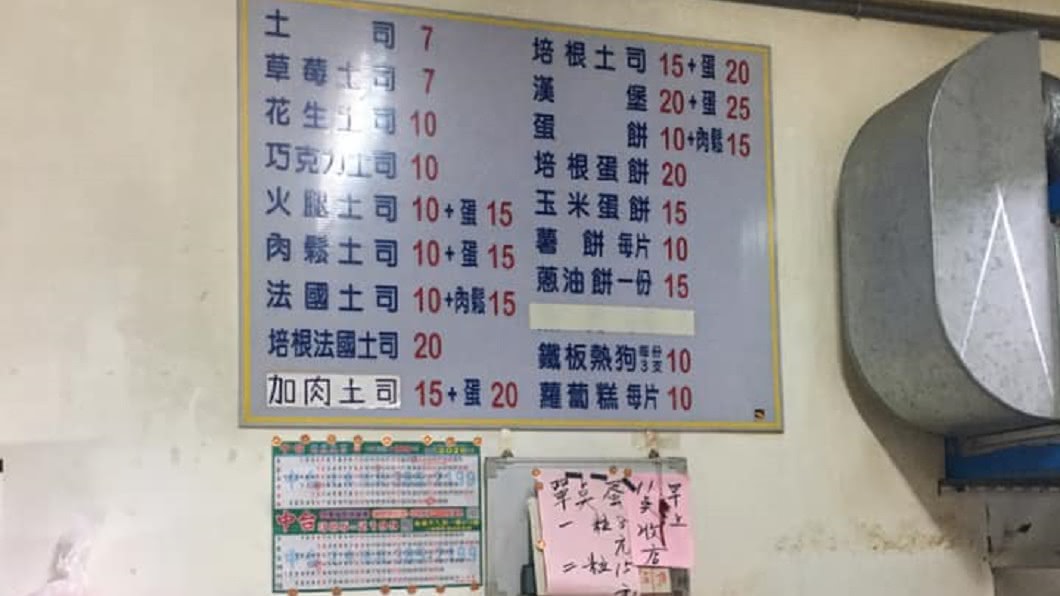 土司 7
草莓土司 7
花生土司 10
巧克力土司 10
火腿土司 10+蛋 15
肉鬆土司 10+蛋 15
法國土司 10+肉鬆 15
培根法國土司 20
加肉土司 15+蛋 20
培根土司 15+蛋 20
漢堡 20+蛋 25
蛋餅 10+肉鬆 15
培根蛋餅 20
玉米蛋餅 15
薯餅 每片 10
蔥油餅一份 15
鐵板熱狗 每份3支 10
蘿蔔糕 每片 10
2020
中台
中台
早上
11
收店
蛋
一粒
二粒 15